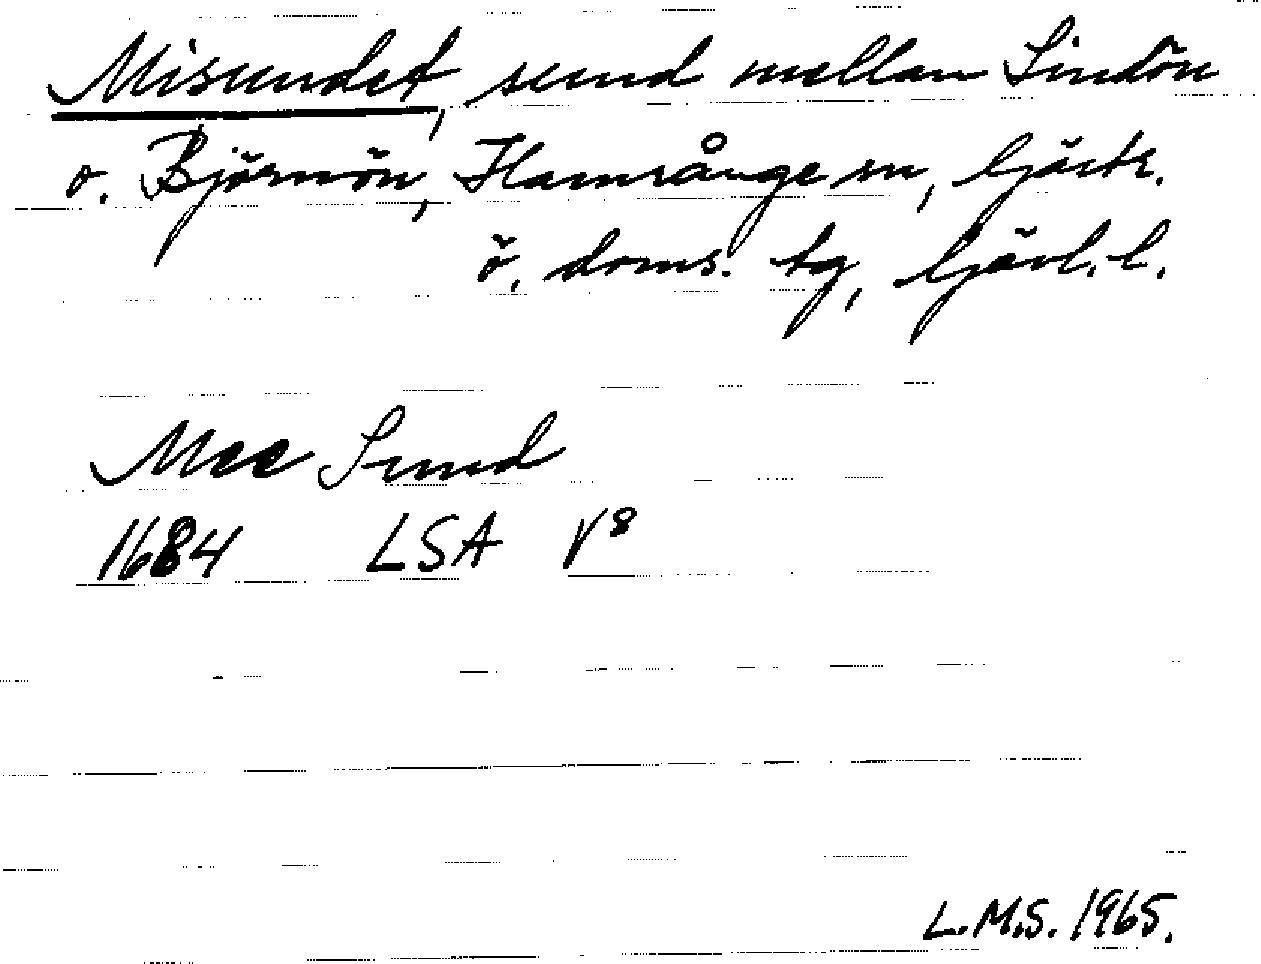 Misundet, sund mellan Lindön
o. Björnön, Hamrånge sn, Gästr.
ö. doms. tg, Gävl. l.
Mee Sund
1684 LSA V⁸
L.M.S. 1965.